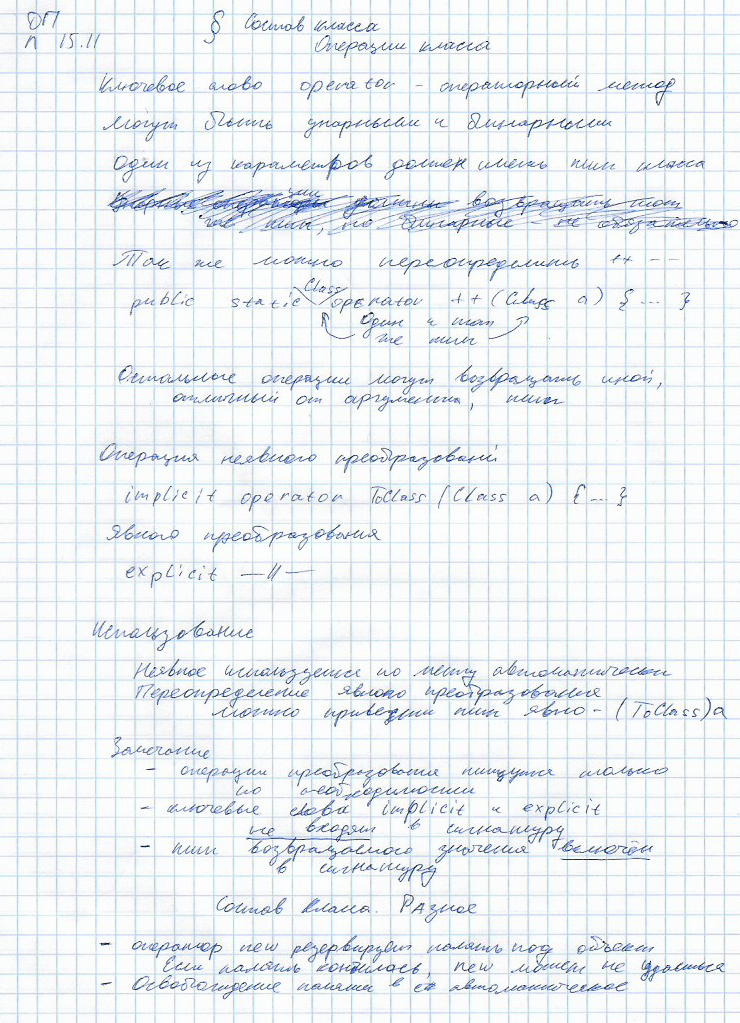 ОП
п 15.11
§ Состав класса
Операции класса
Ключевое слово operator - операторный метод
Могут быть унарными и бинарными
Один из параметров должен иметь тип класса
должны возвращать тот
же тип, но бинарные - не обязательно
Так же можно переопределить ++ --
public static Class operator ++ (Class a) { ... }
Один и тот
же тип
Остальные операции могут возвращать иной,
отличный от аргумента, тип
Операция неявного преобразований
implicit operator ToClass (Class a) { ... }
Явного преобразования
explicit —//—
Использование
Неявное используется по месту автоматически
Переопределение явного преобразования
можно приведении тип явно - (ToClass)a
Замечание
- операции преобразования пишутся только
по необходимости
- ключевые слова implicit и explicit
не входят в сигнатуру
- тип возвращаемого значения включён
в сигнатуру
Состав класса. Разное
- оператор new резервирует память под объект
Если память кончилась, new может не удаться
- Освобождение памяти в c# автоматическое